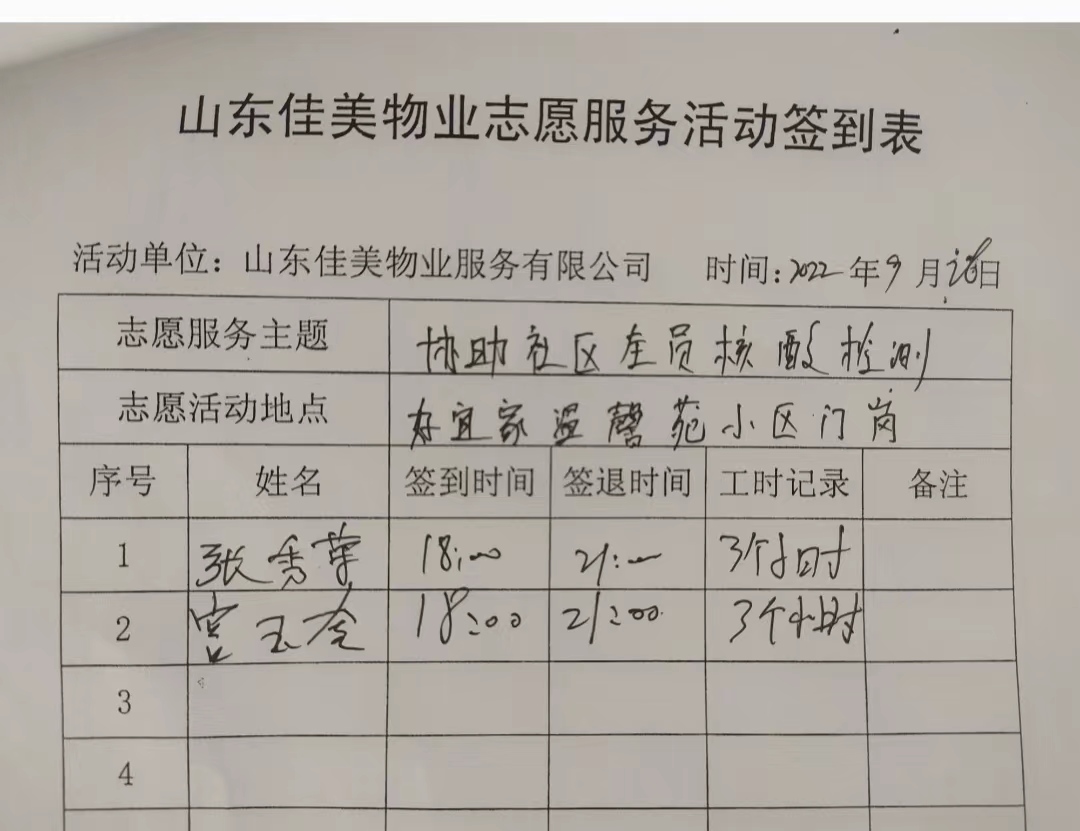 山东佳美物业志愿服务活动签到表
活动单位：山东佳美物业服务有限公司 时间：2022年9月 日
志愿服务主题 协助社区全员核酸检测
志愿活动地点 好宜家温馨苑小区门岗
序号 姓名 签到时间 签退时间 工时记录 备注
1 张秀華 18:00 21:00 3个小时
2 宫玉 18:00 21:00 3个小时
3
4